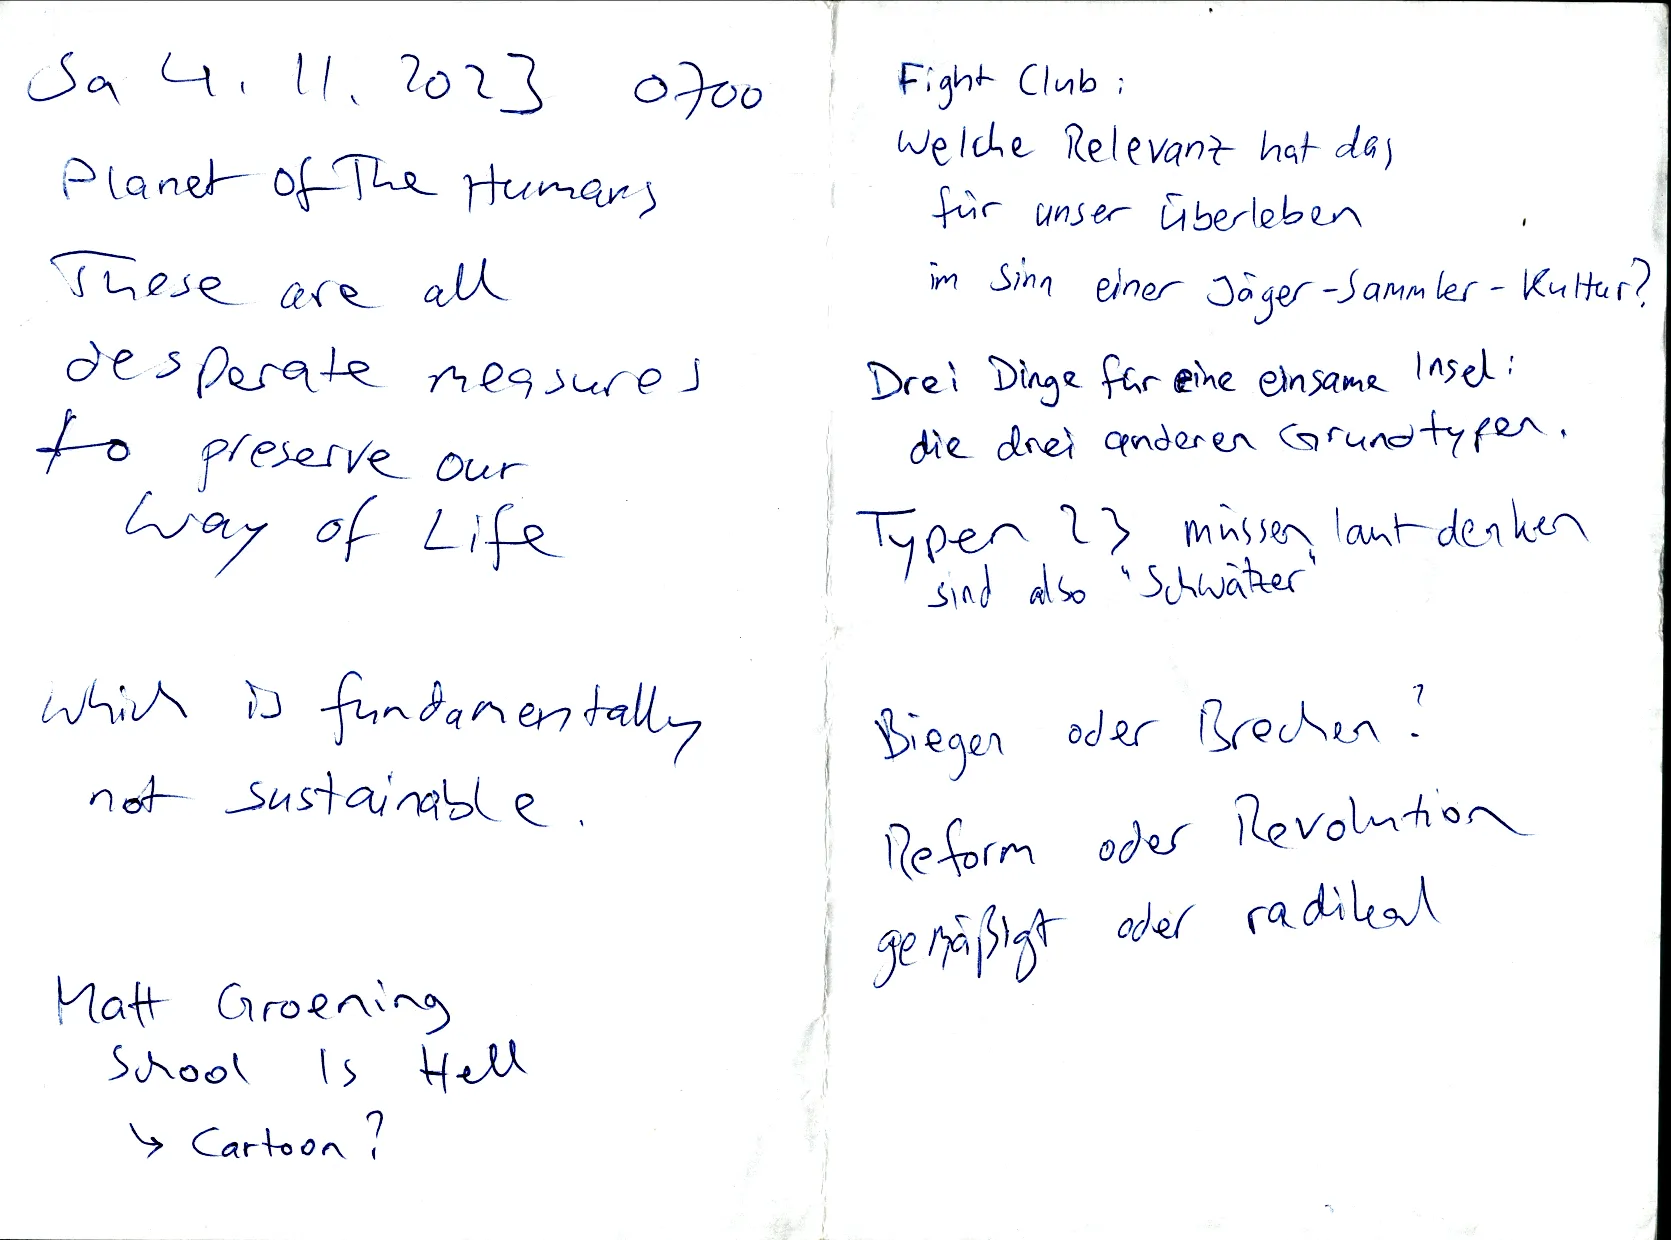 Sa 4. 11. 2023 0700
Planet Of The Humans
These are all
desperate measures
to preserve our
Way of Life
which is fundamentally
not sustainable.
Matt Groening
School Is Hell
↳ Cartoon?
Fight Club:
Welche Relevanz hat das
für unser Überleben
im Sinn einer Jäger-Sammler-Kultur?
Drei Dinge für eine einsame Insel:
die drei anderen Grundtypen.
Typen 23 müssen laut denken
sind also "Schwätzer"
Biegen oder Brechen?
Reform oder Revolution
gemäßigt oder radikal